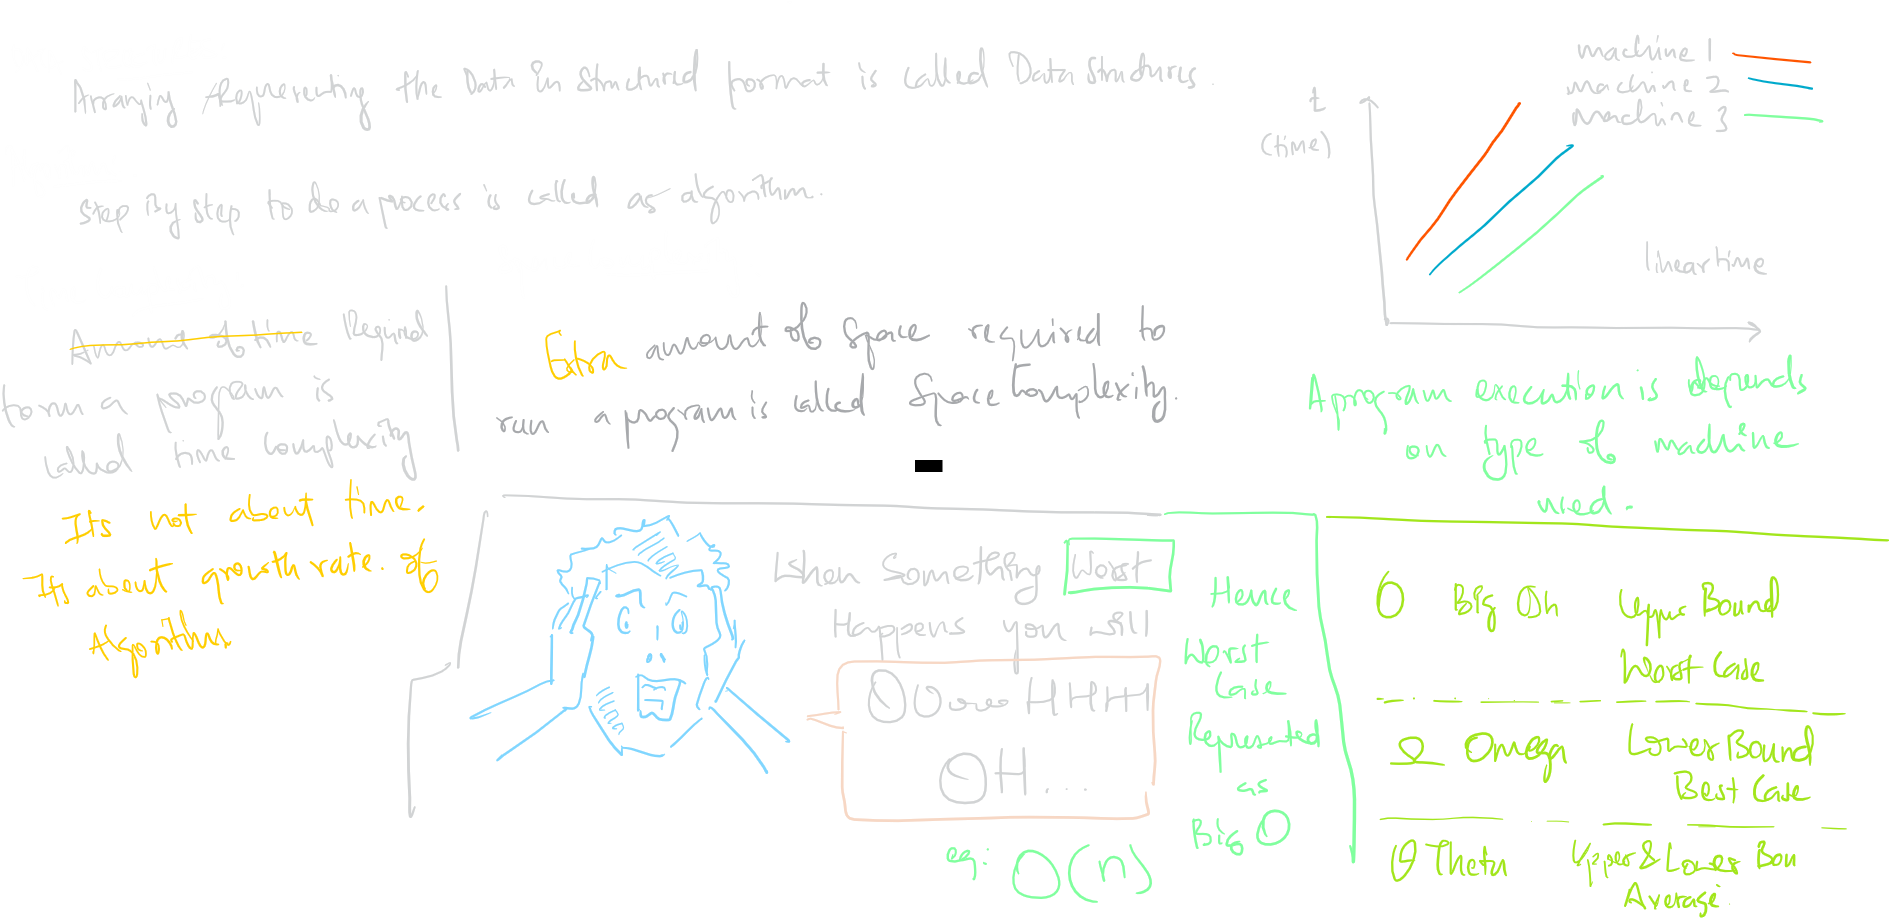 Arranging Representing the Data in structured format is called Data Structures.
Step By step to do a process is called as algorithm.
Amount of time Required
to run a program is
called time complexity
Its not about time.
Its about growth rate of
Algorithm
Extra amount of space required to
run a program is called Space Complexity.
t
(time)
machine 1
machine 2
machine 3
linear time
A program execution is depends
on type of machine
used.
When Something Worst
Happens you will
OOoooHHHH
OH...
Hence
Worst
Case
Represented
as
Big O
eg: O(n)
O Big Oh Upper Bound
Worst Case
Ω Omega Lower Bound
Best Case
θ Theta Upper & Lower Boun
Average